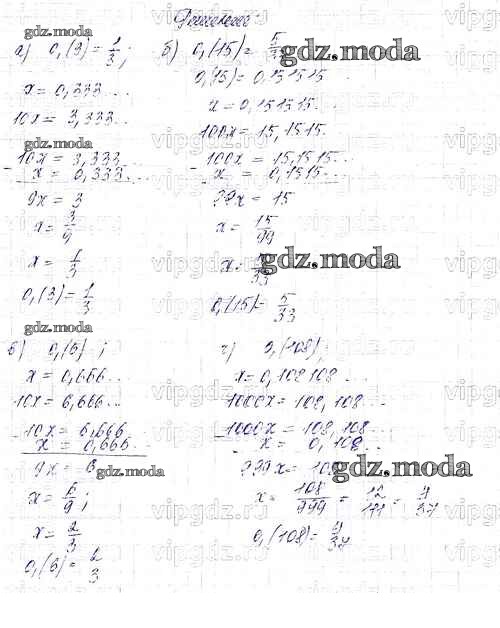 Решение:
gdz.moda
а) 0,(3) = 1/3;
x = 0,333...
10x = 3,333...
gdz.moda
10x = 3,333...
- x = 0,333...
9x = 3
x = 3/9
x = 1/3
0,(3) = 1/3
gdz.moda
б) 0,(15) =
gdz.moda
0,(15) = 0,151515...
x = 0,151515...
100x = 15,1515...
100x = 15,1515...
- x = 0,1515...
99x = 15
x = 15/99
gdz.moda
0,(15) = 5/33
в) 0,(6);
x = 0,666...
10x = 6,666...
10x = 6,666...
- x = 0,666...
9x = 6
gdz.moda
x = 6/9;
x = 2/3
0,(6) = 2/3
г) 0,(108);
x = 0,108108...
1000x = 108,108...
1000x = 108,108...
- x = 0,108...
999x = 108
gdz.moda
x = 108/999 = 12/111 = 4/37
0,(108) = 4/37
vipgdz.com